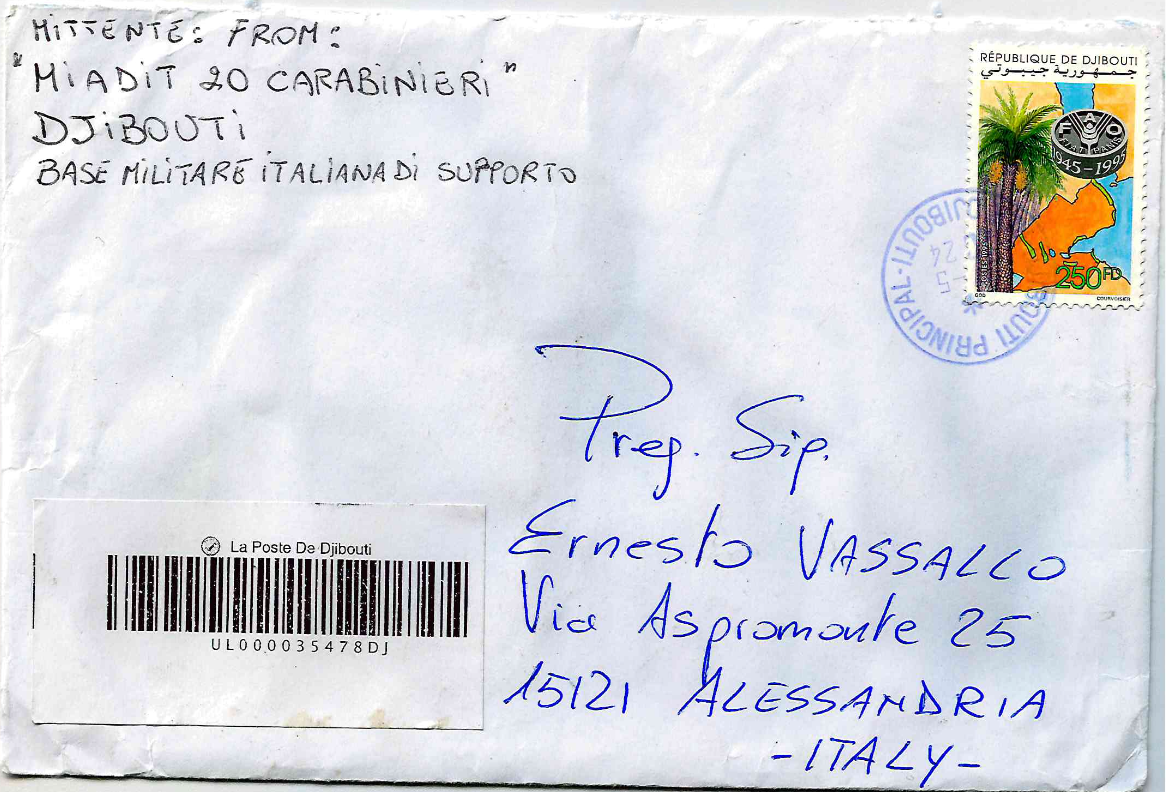 MITTENTE: FROM:
"MIADIT 20 CARABINIERI"
DJIBOUTI
BASE MILITARE ITALIANA DI SUPPORTO
RÉPUBLIQUE DE DJIBOUTI
جمهورية جيبوتي
FAO
FIAT PANIS
1945-1995
250FD
COURVOISIER
BOUTI PRINCIPAL-DJIBOUTI
-5
24
Preg. Sig.
Ernesto VASSALLO
Via Aspromonte 25
15121 ALESSANDRIA
-ITALY-
La Poste De Djibouti
UL000035478DJ